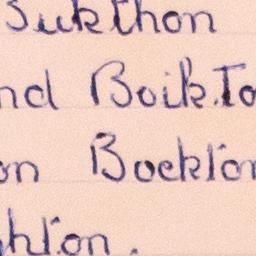 Sukthon
nd Boik.To
on Bockton
hton.